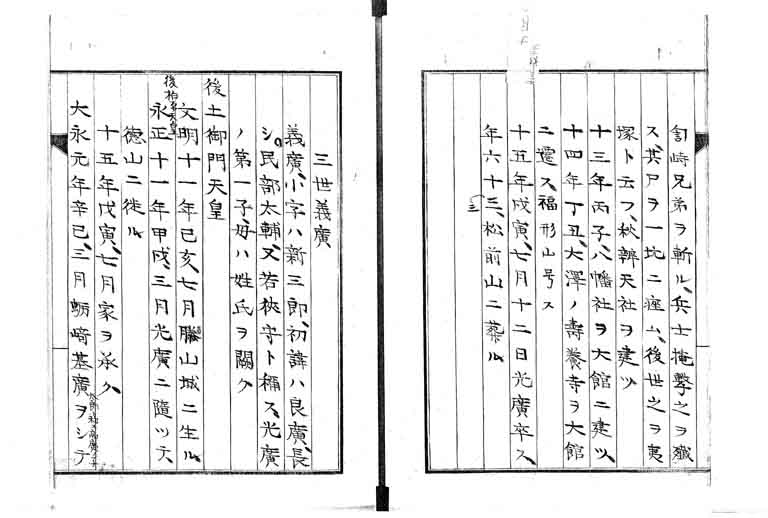 訇峙兄弟ヲ斬ル、兵士掩擊之ヲ殲
ス、其尸ヲ一坑ニ瘞ム、後世之ヲ夷
塚ト云フ、秋辨天社ヲ建ツ
十三年丙子、八幡社ヲ大館ニ建ツ、
十四年丁丑、大澤ノ壽養寺ヲ大館
ニ遷ス、福形山号ス
十五年戊寅、七月十二日光廣卒ス、
年六十三、松前山ニ葬ル
三
三世義廣
義廣、小字ハ新三郎、初諱ハ良廣、長
シ民部太輔、又若狹守ト稱ス、光廣
ノ第一子、母ハ姓氏ヲ闕ク
後土御門天皇
文明十一年己亥、七月勝山城ニ生ル
後柏原天皇
永正十一年甲戌、三月光廣ニ隨ツテ、
德山ニ徙ル
十五年戊寅、七月家ヲ承ク、
大永元年辛巳、三月蛎崎基廣ヲシテ